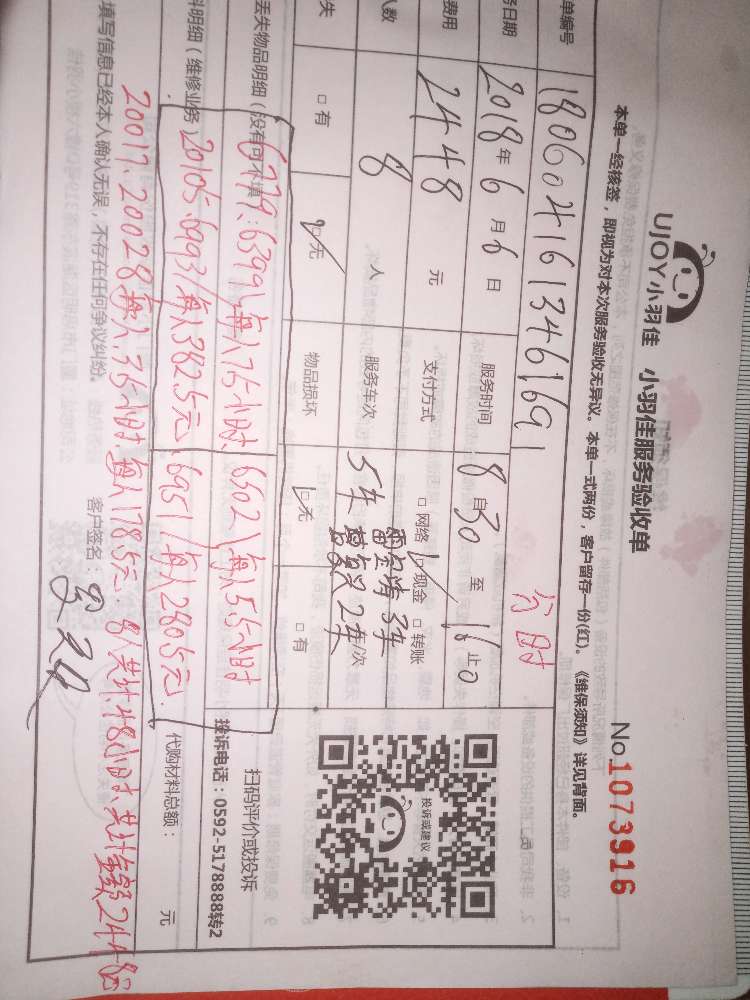 UJOY小羽佳 小羽佳服务验收单
No 1073916
本单一经核签，即视为对本次服务验收无异议。本单一式两份，客户留存一份(红)。《维保须知》详见背面。
单编号 1806041613461691
分时
务日期 2018年6月6日 服务时间 8自30至16止0
费用 2448元 支付方式 □网络 □现金 □转账
人数 8人 服务车次 5车 3车 2车/次
失 □有 □无 物品损坏 □无 □有
丢失物品明细（没有可不填
6779.6399\每人7.5小时. 6502\每人5.5小时
料明细（维修业务）
20105.6993/每人382.5元. 6951/每人280.5元.
20017.20028每人3.5小时.每人178.5元.8人共计48小时.共计金额2448元
投诉或建议
扫码评价或投诉
投诉电话：0592-5178888转2
代购材料总额： 元
填写信息已经本人确认无误，不存在任何争议纠纷。 客户签名：